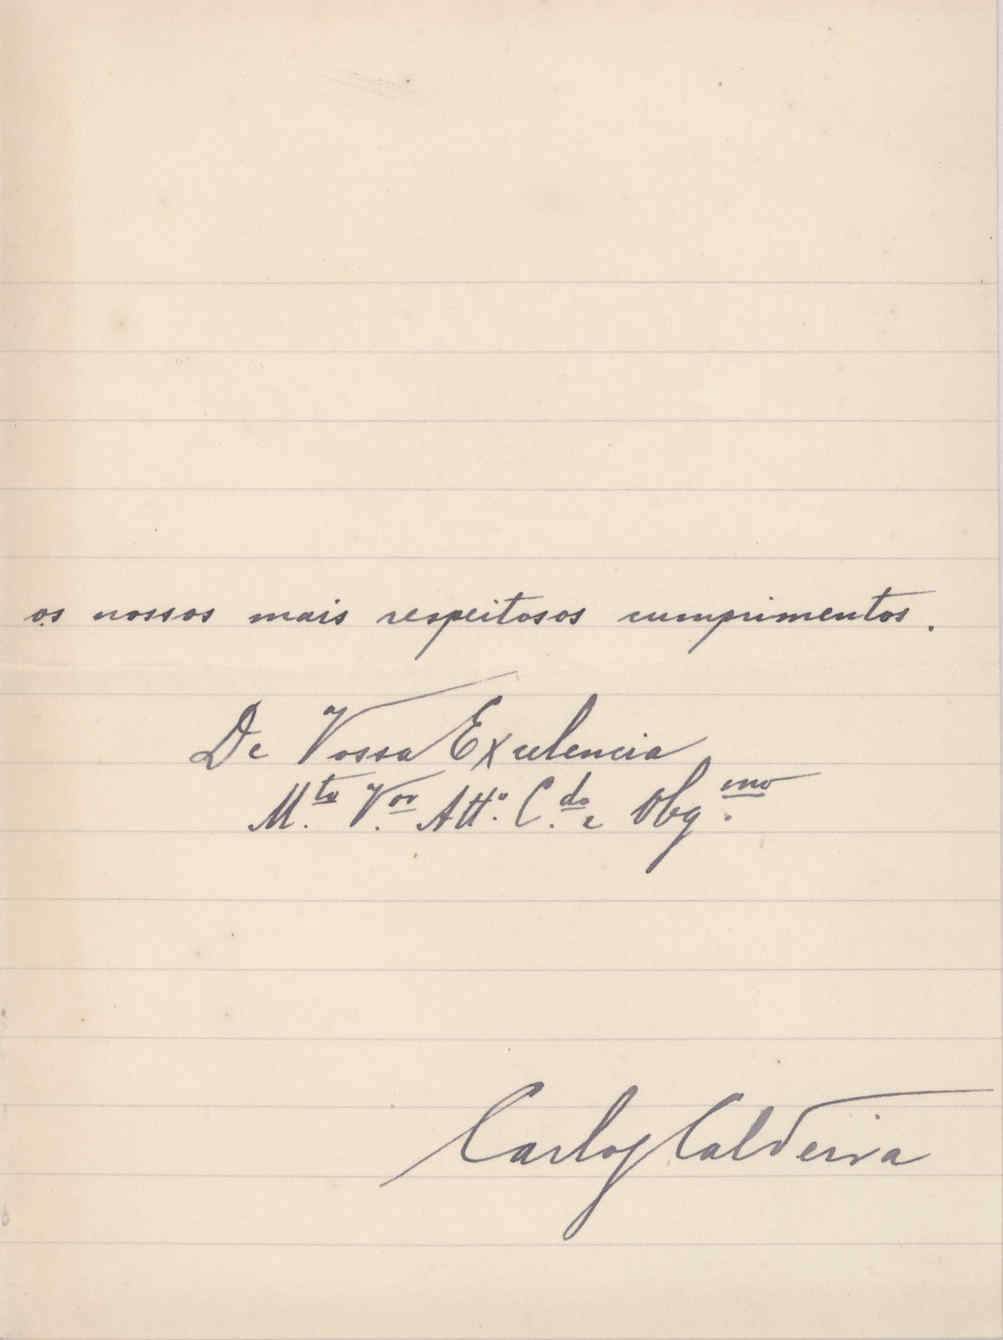 os nossos mais respeitosos cumprimentos.
De Vossa Excelencia
M.to V.or Att.o C.do e Obg.mo
Carlos Caldeira